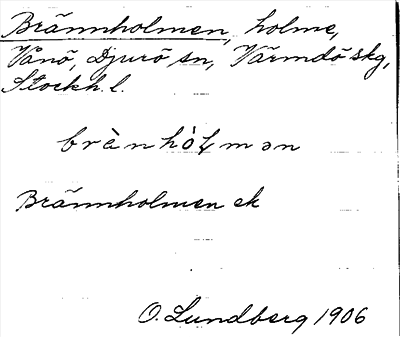 Brännholmen, holme,
Vanö, Djurö sn, Värmdö skg,
Stockh. l.
brànhòɫmən
Brännholmen ek
O. Lundberg 1906